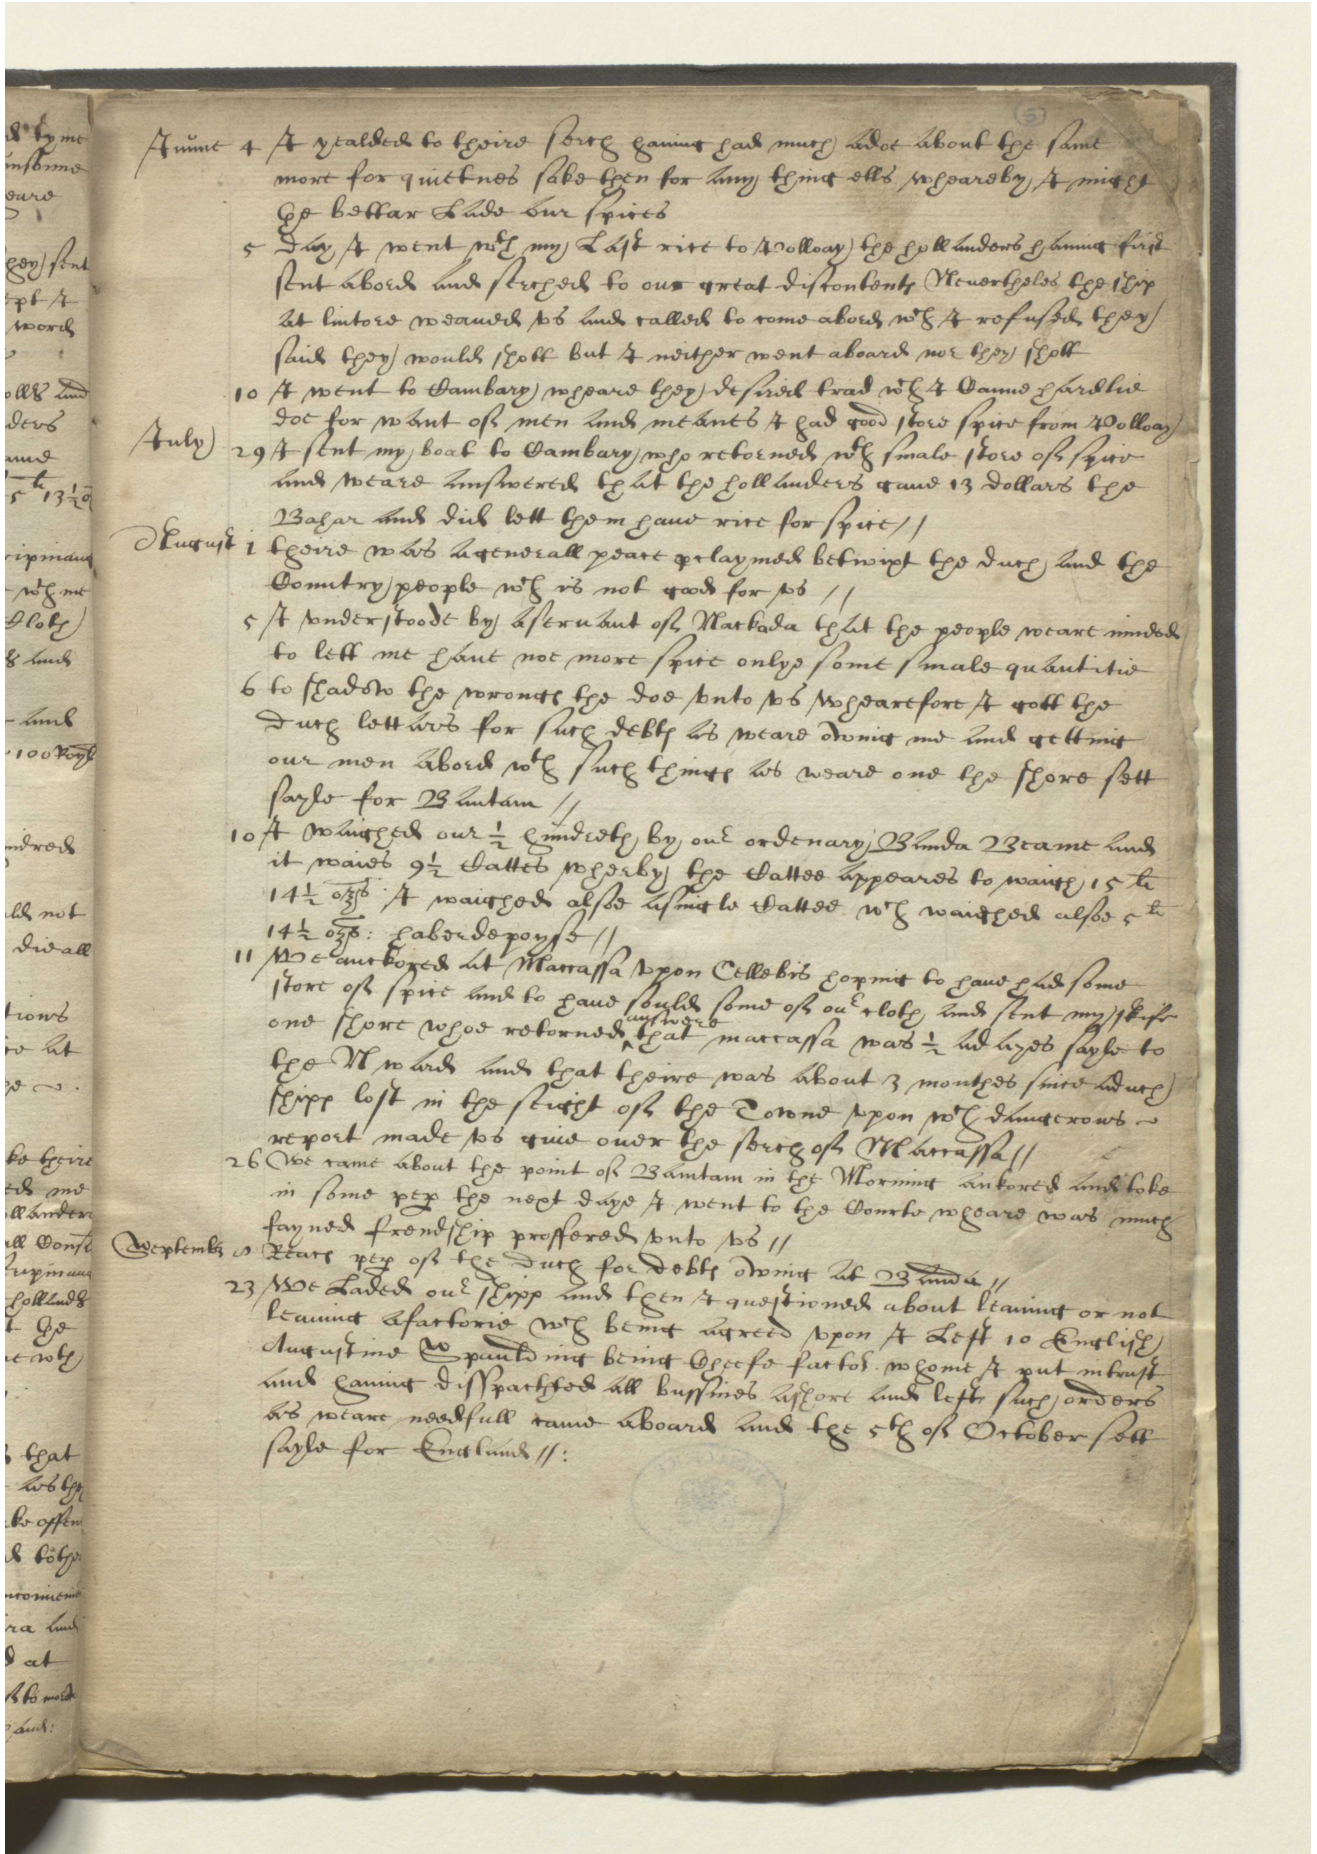 5
Iunne 4 I yealded to theire serch having had much adoe about the same
more for quietnes sake then for any thing ells wheareby I might
the bettar Lade our spices
5 Day I went wth my Last rice to Polloay the hollanders having first
sent abord and serched to our great discontents Nevertheles the ship
at lintore weaved vs and called to come abord wch I refused they
said they would shott but I neither went aboard nor they shott
10 I went to Cambary wheare they desired trad wch I Canne hardlie
doe for want of men and meanes I had good store spice from Polloay
Iuly 29 I sent my boat to Cambary who retorned wth smale store of spice
and weare answered that the hollanders gaue 13 dollars the
Bahar and did lett them haue rice for spice //
August 1 theire was a generall peace pclaymed betwixt the duch and the
Country people wch is not good for vs //
5 I vnderstoode by a servant of Nackada that the people weare minded
to lett me haue noe more spice onlye some smale quantitie
6 to shadow the wrongs the doe vnto vs whearefore I gott the
Duch lettars for such debts as weare owing me and getting
our men abord wth such things as weare one the shore sett
sayle for Bantam //
10 I waighed our ½ hundreth by our ordenary Banda Beame and
it waies 9½ Cattes wherby the Cattee appeares to waigh 5 li
14½ ozs: I waighed alsoe a single Cattee wch waighed alsoe 5 li
14½ ozs: haberdepoyse //
11 We anckored at Maccassa vpon Cellebis hoping to haue had some
store of spice and to haue soulde some of our cloth and sent my skife
one shore whoe retorned answere that maccassa was ½ a dayes sayle to
the Nward and that theire was about 3 monthes since a duch
shipp lost in the seight of the Towne vpon wch dangerous
report made vs giue over the serch of Maccassa //
26 We came about the point of Bantam in the Morning ankored and toke
in some pepr the next daye I went to the Courte wheare was much
fayned frendship proffered vnto vs //
Septembr Reacd pepr of the Duch for debts owing at Banda //
23 We Laded our shipp and then I questioned about leaving or not
leaving a factorie wch being agreed vpon I Left 10 English
Augustine Spaulding being Cheefe factor whome I put in trust
and having disspachted all bussines ashore and left such orders
as weare needfull came aboard and the 5th of October sett
sayle for England //: